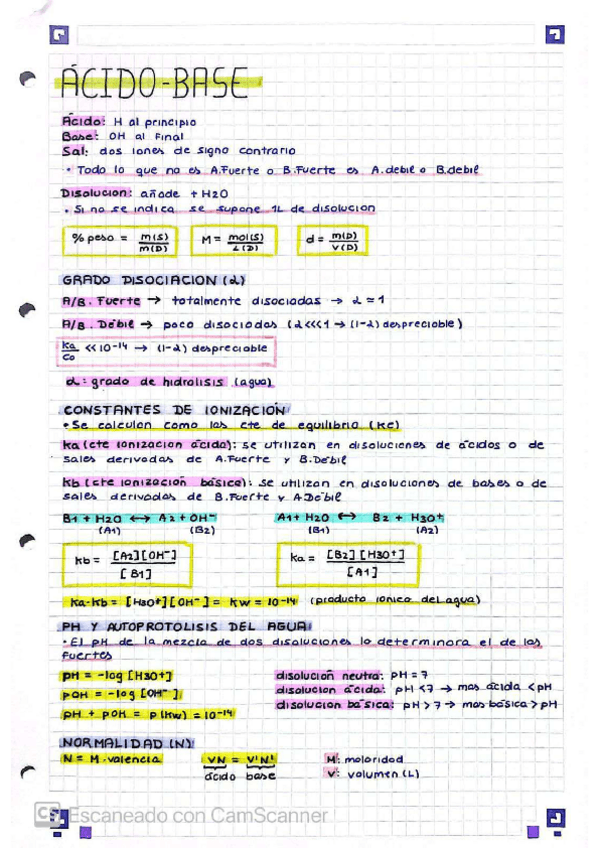 ÁCIDO-BASE
Ácido: H al principio
Base: OH al Final
Sal: dos iones de signo contrario
• Todo lo que no es A.Fuerte o B.Fuerte es A.debil o B.debil
Disolucion: añade + H2O
• Si no se indica se supone 1L de disolucion
% peso = m(S)/m(D) M = mol(S)/L(D) d = m(D)/V(D)
GRADO DISOCIACION (α)
A/B. Fuerte → totalmente disociadas → α = 1
A/B. Débil → poco disociadas (α<<<1 → (1-α) despreciable)
Ka/Co <<10-14 → (1-α) despreciable
α = grado de hidrolisis (agua)
CONSTANTES DE IONIZACIÓN
• Se calculan como las cte de equilibrio (Kc)
Ka (cte ionizacion ácida): se utilizan en disoluciones de ácidos o de
sales derivadas de A.Fuerte y B.Débil
Kb (cte ionización básica): se utilizan en disoluciones de bases o de
sales derivadas de B.Fuerte y A.Débil
B1 + H2O ⟷ A2 + OH- A1 + H2O ⟷ B2 + H3O+
(A1) (B2) (B1) (A2)
Kb = [A2][OH-]/[B1] Ka = [B2][H3O+]/[A1]
Ka·Kb = [H3O+][OH-] = Kw = 10-14 (producto ionico del agua)
PH Y AUTOPROTOLISIS DEL AGUA
• El pH de la mezcla de dos disoluciones lo determinara el de las
fuertes
pH = -log [H3O+] disolución neutra: pH = 7
pOH = -log [OH-] disolucion ácida: pH <7 → mas ácida <pH
pH + pOH = p(Kw) = 10-14 disolucion básica: pH >7 → mas básica >pH
NORMALIDAD (N)
N = M·valencia VN = V'N' M: molaridad
ácido base V: volumen (L)
CS Escaneado con CamScanner